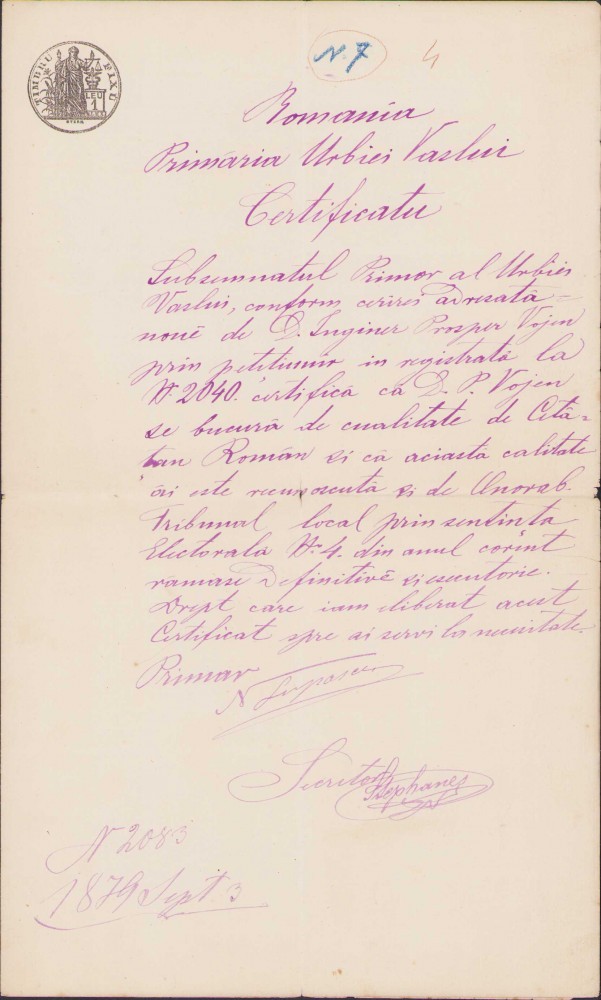 TIMBRU FIXU
LEU
1
N. 7
4
Romania
Primăria Urbiei Vaslui
Certificatu
Subsemnatul Primar al Urbiei
Vaslui, conform cererei adresată
nouĕ de D. Inginer Prosper Vojen
prin petitiunia in registrată la
N. 2040. certifică ca D. P. Vojen
se bucură de cualitate de Cetă-
tan Român și că aciasta calitate
ăi este recunoscută și de Onorab.
Tribunal local prin sentinta
Electorala N. 4. din anul corint
ramase Definitivĕ și esecutorie.
Drept care iam eliberat acest
Certificat spre ai servi la necesitate.
Primar
N
Secretar Stephanes
N 2083
1879 Sept. 3